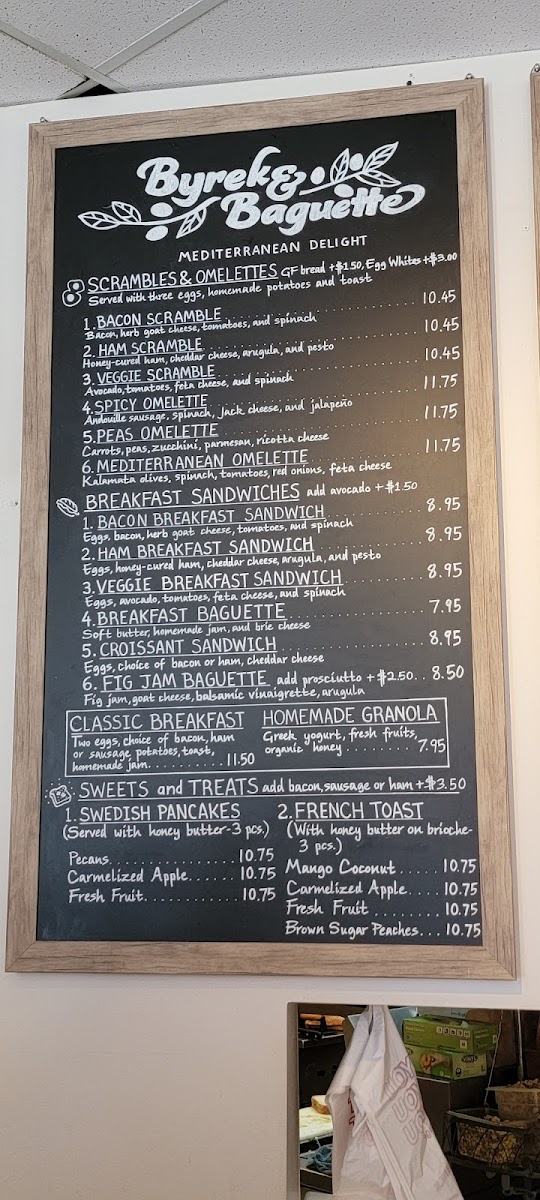 Byrek &
Baguette
MEDITERRANEAN DELIGHT
SCRAMBLES & OMELETTES GF bread +$1.50, Egg Whites +$3.00
Served with three eggs, homemade potatoes and toast
1. BACON SCRAMBLE 10.45
Bacon, herb goat cheese, tomatoes, and spinach
2. HAM SCRAMBLE 10.45
Honey-cured ham, cheddar cheese, arugula, and pesto
3. VEGGIE SCRAMBLE 10.45
Avocado, tomatoes, feta cheese, and spinach
4. SPICY OMELETTE 11.75
Andouille sausage, spinach, jack cheese, and jalapeño
5. PEAS OMELETTE 11.75
Carrots, peas, zucchini, parmesan, ricotta cheese
6. MEDITERRANEAN OMELETTE 11.75
Kalamata olives, spinach, tomatoes, red onions, feta cheese
BREAKFAST SANDWICHES add avocado +$1.50
1. BACON BREAKFAST SANDWICH 8.95
Eggs, bacon, herb goat cheese, tomatoes, and spinach
2. HAM BREAKFAST SANDWICH 8.95
Eggs, honey-cured ham, cheddar cheese, arugula, and pesto
3. VEGGIE BREAKFAST SANDWICH 8.95
Eggs, avocado, tomatoes, feta cheese, and spinach
4. BREAKFAST BAGUETTE 7.95
Soft butter, homemade jam, and brie cheese
5. CROISSANT SANDWICH 8.95
Eggs, choice of bacon or ham, cheddar cheese
6. FIG JAM BAGUETTE add prosciutto +$2.50.. 8.50
Fig jam, goat cheese, balsamic vinaigrette, arugula
CLASSIC BREAKFAST
Two eggs, choice of bacon, ham
or sausage potatoes, toast,
homemade jam 11.50
HOMEMADE GRANOLA
Greek yogurt, fresh fruits,
organic honey 7.95
SWEETS and TREATS add bacon, sausage or ham +$3.50
1. SWEDISH PANCAKES
(Served with honey butter-3 pcs.)
Pecans 10.75
Carmelized Apple 10.75
Fresh Fruit 10.75
2. FRENCH TOAST
(With honey butter on brioche-
3 pcs.)
Mango Coconut 10.75
Carmelized Apple 10.75
Fresh Fruit 10.75
Brown Sugar Peaches 10.75